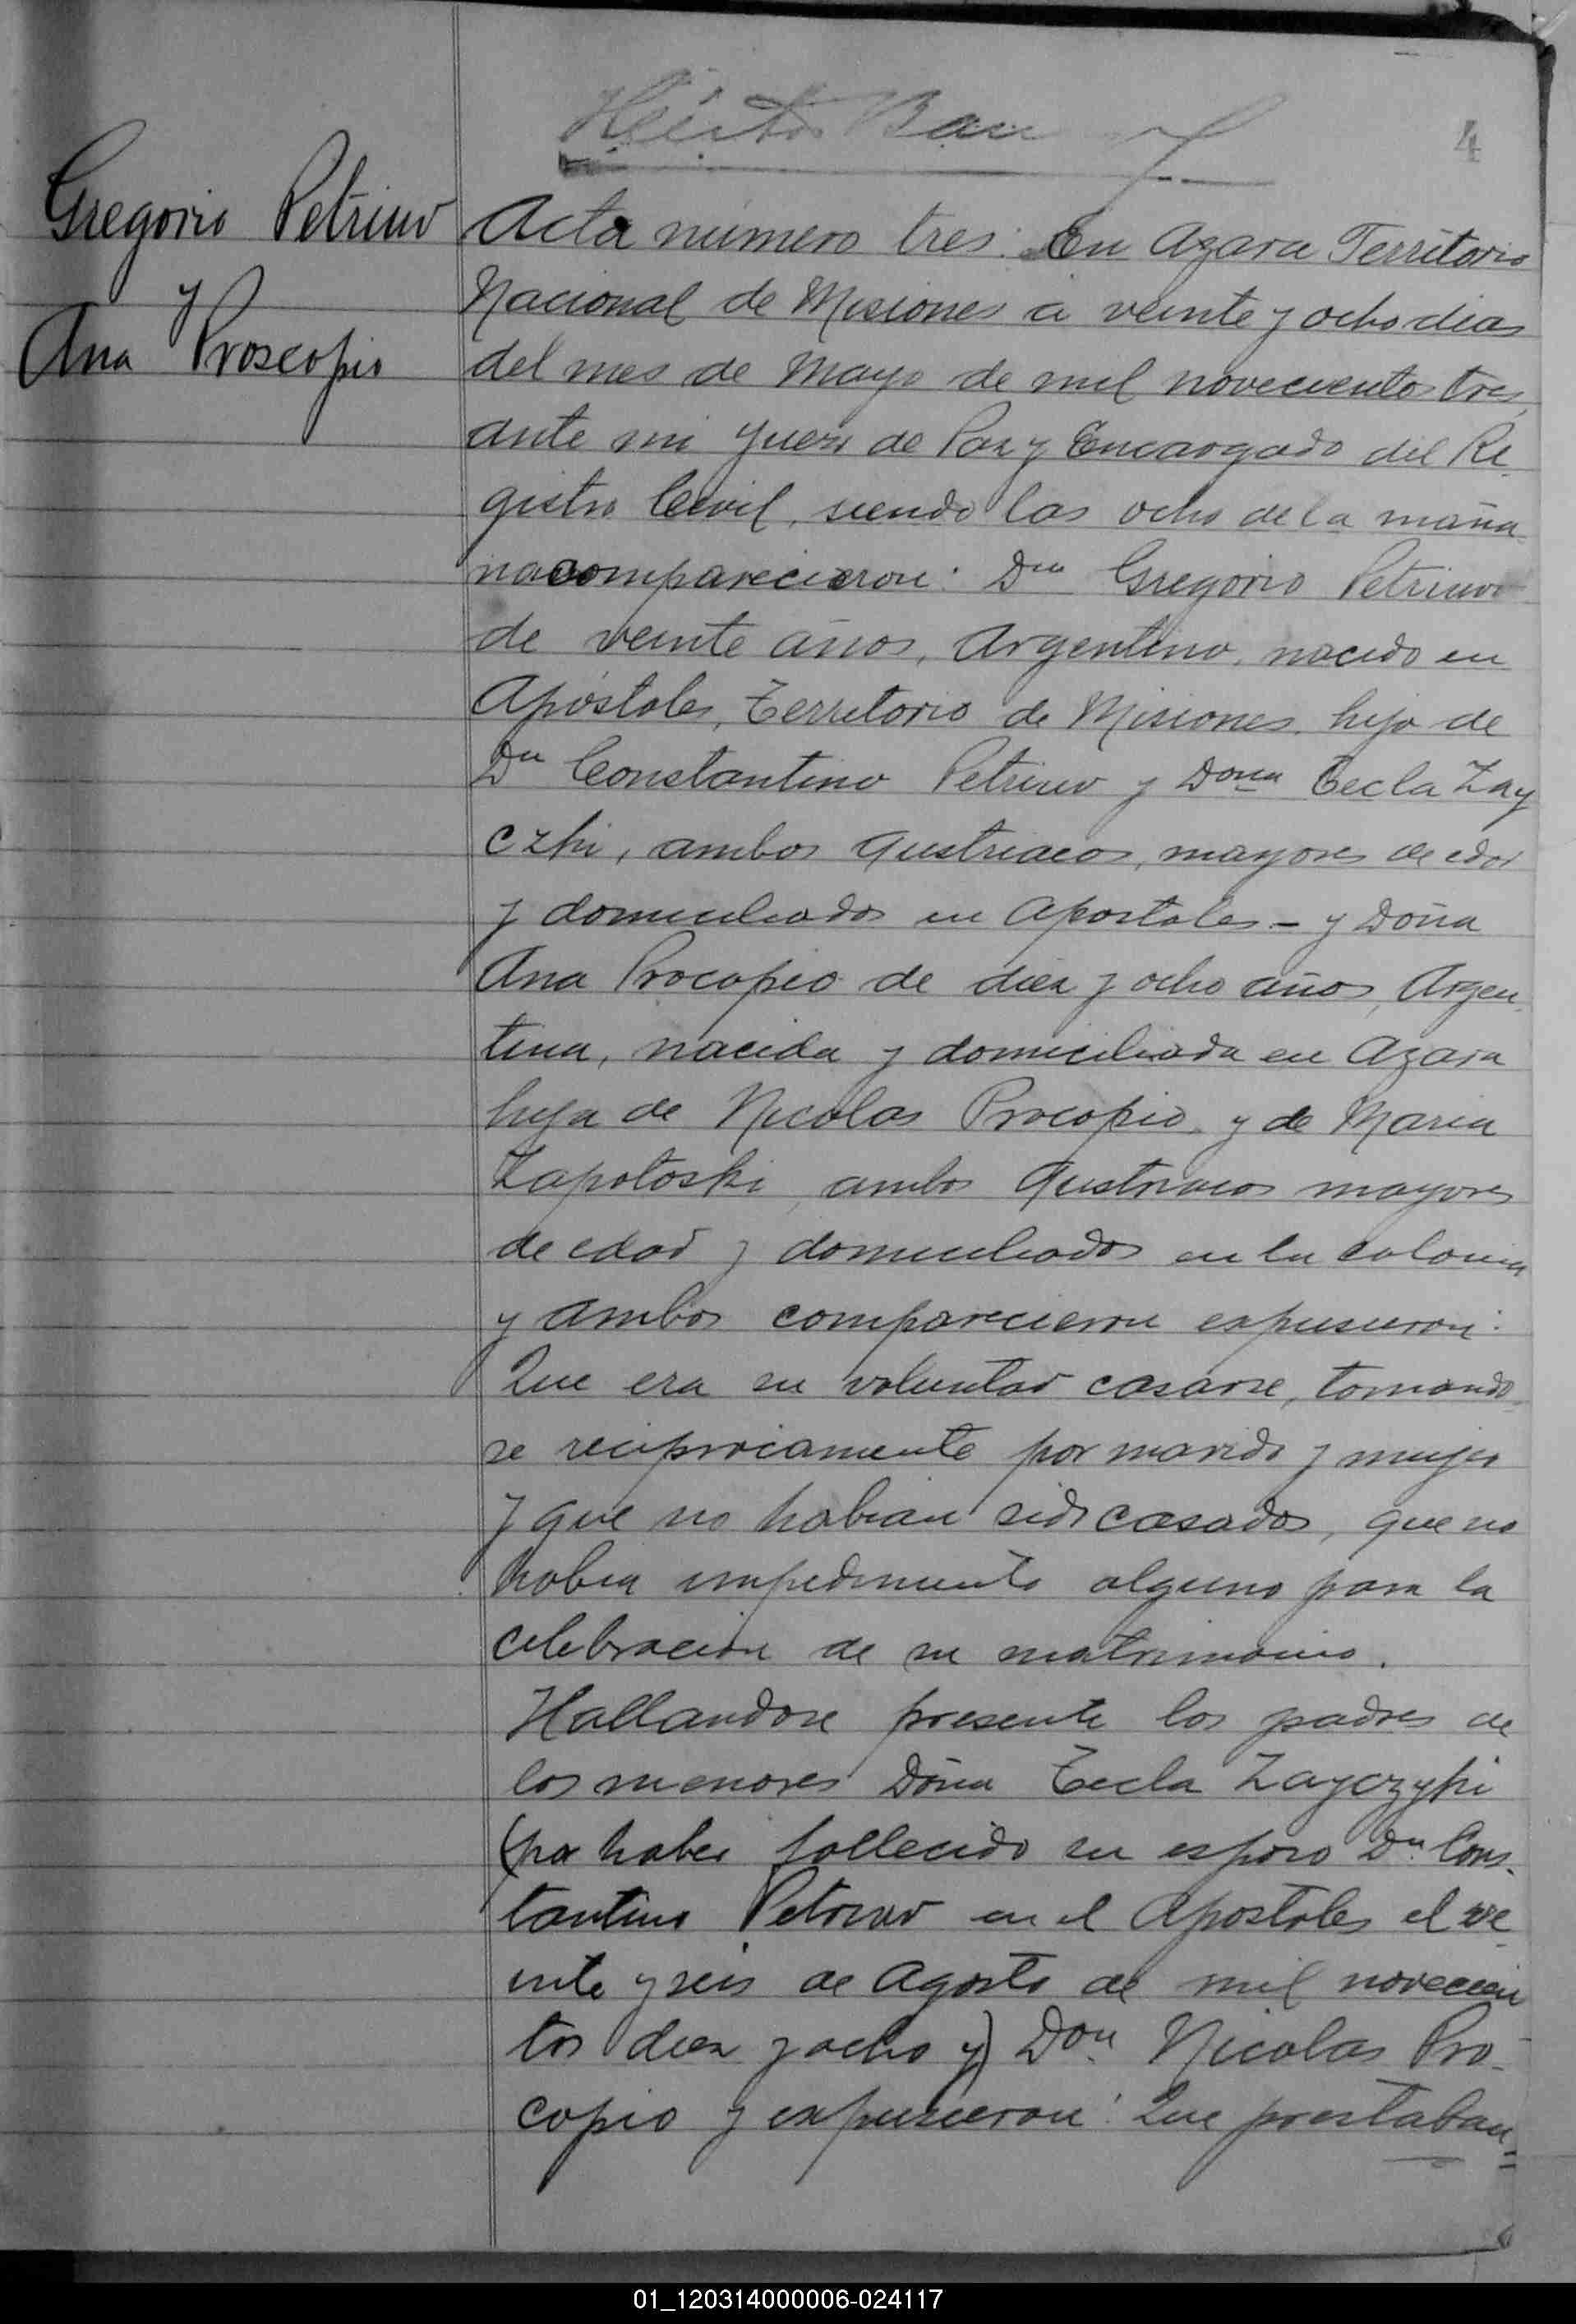 Héctor Bau
4
Gregorio Petriuw
y
Ana Proscopio
Acta número tres. En Azara Territorio
Nacional de Misiones á veinte y ocho dias
del mes de Mayo de mil novecientos tres
ante mi Juez de Paz y Encargado del Re
gistro Civil, siendo las ocho de la maña
na comparecieron: Dn Gregorio Petriuw
de veinte años, Argentino, nacido en
Apóstoles, Territorio de Misiones, hijo de
Dn Constantino Petriuw y Dona Tecla Zay
czki, ambos Austriacos, mayores de edad
y domiciliados en Apostoles - y Doña
Ana Procopio de diez y ocho años, Argen
tina, nacida y domiciliada en Azara
hija de Nicolas Procopio y de Maria
Zapotoski, ambos Austriacos mayores
de edad y domiciliados en la colonia
y ambos comparecieron expusieron:
Que era su voluntad casarse, tomando
se reciprocamente por marido y mujer
y que no habian sido casados, que no
habia impedimento alguno para la
celebracion de su matrimonio.
Hallandose presente los padres de
los menores Doña Tecla Zayczyki
(por haber fallecido su esposo Dn Cons
tantino Petriuw en el Apostoles el ve
inte y seis de Agosto de mil novecien
tos diez y ocho y) Don Nicolas Pro-
copio y expusieron: Que prestaban=
01_120314000006-024117